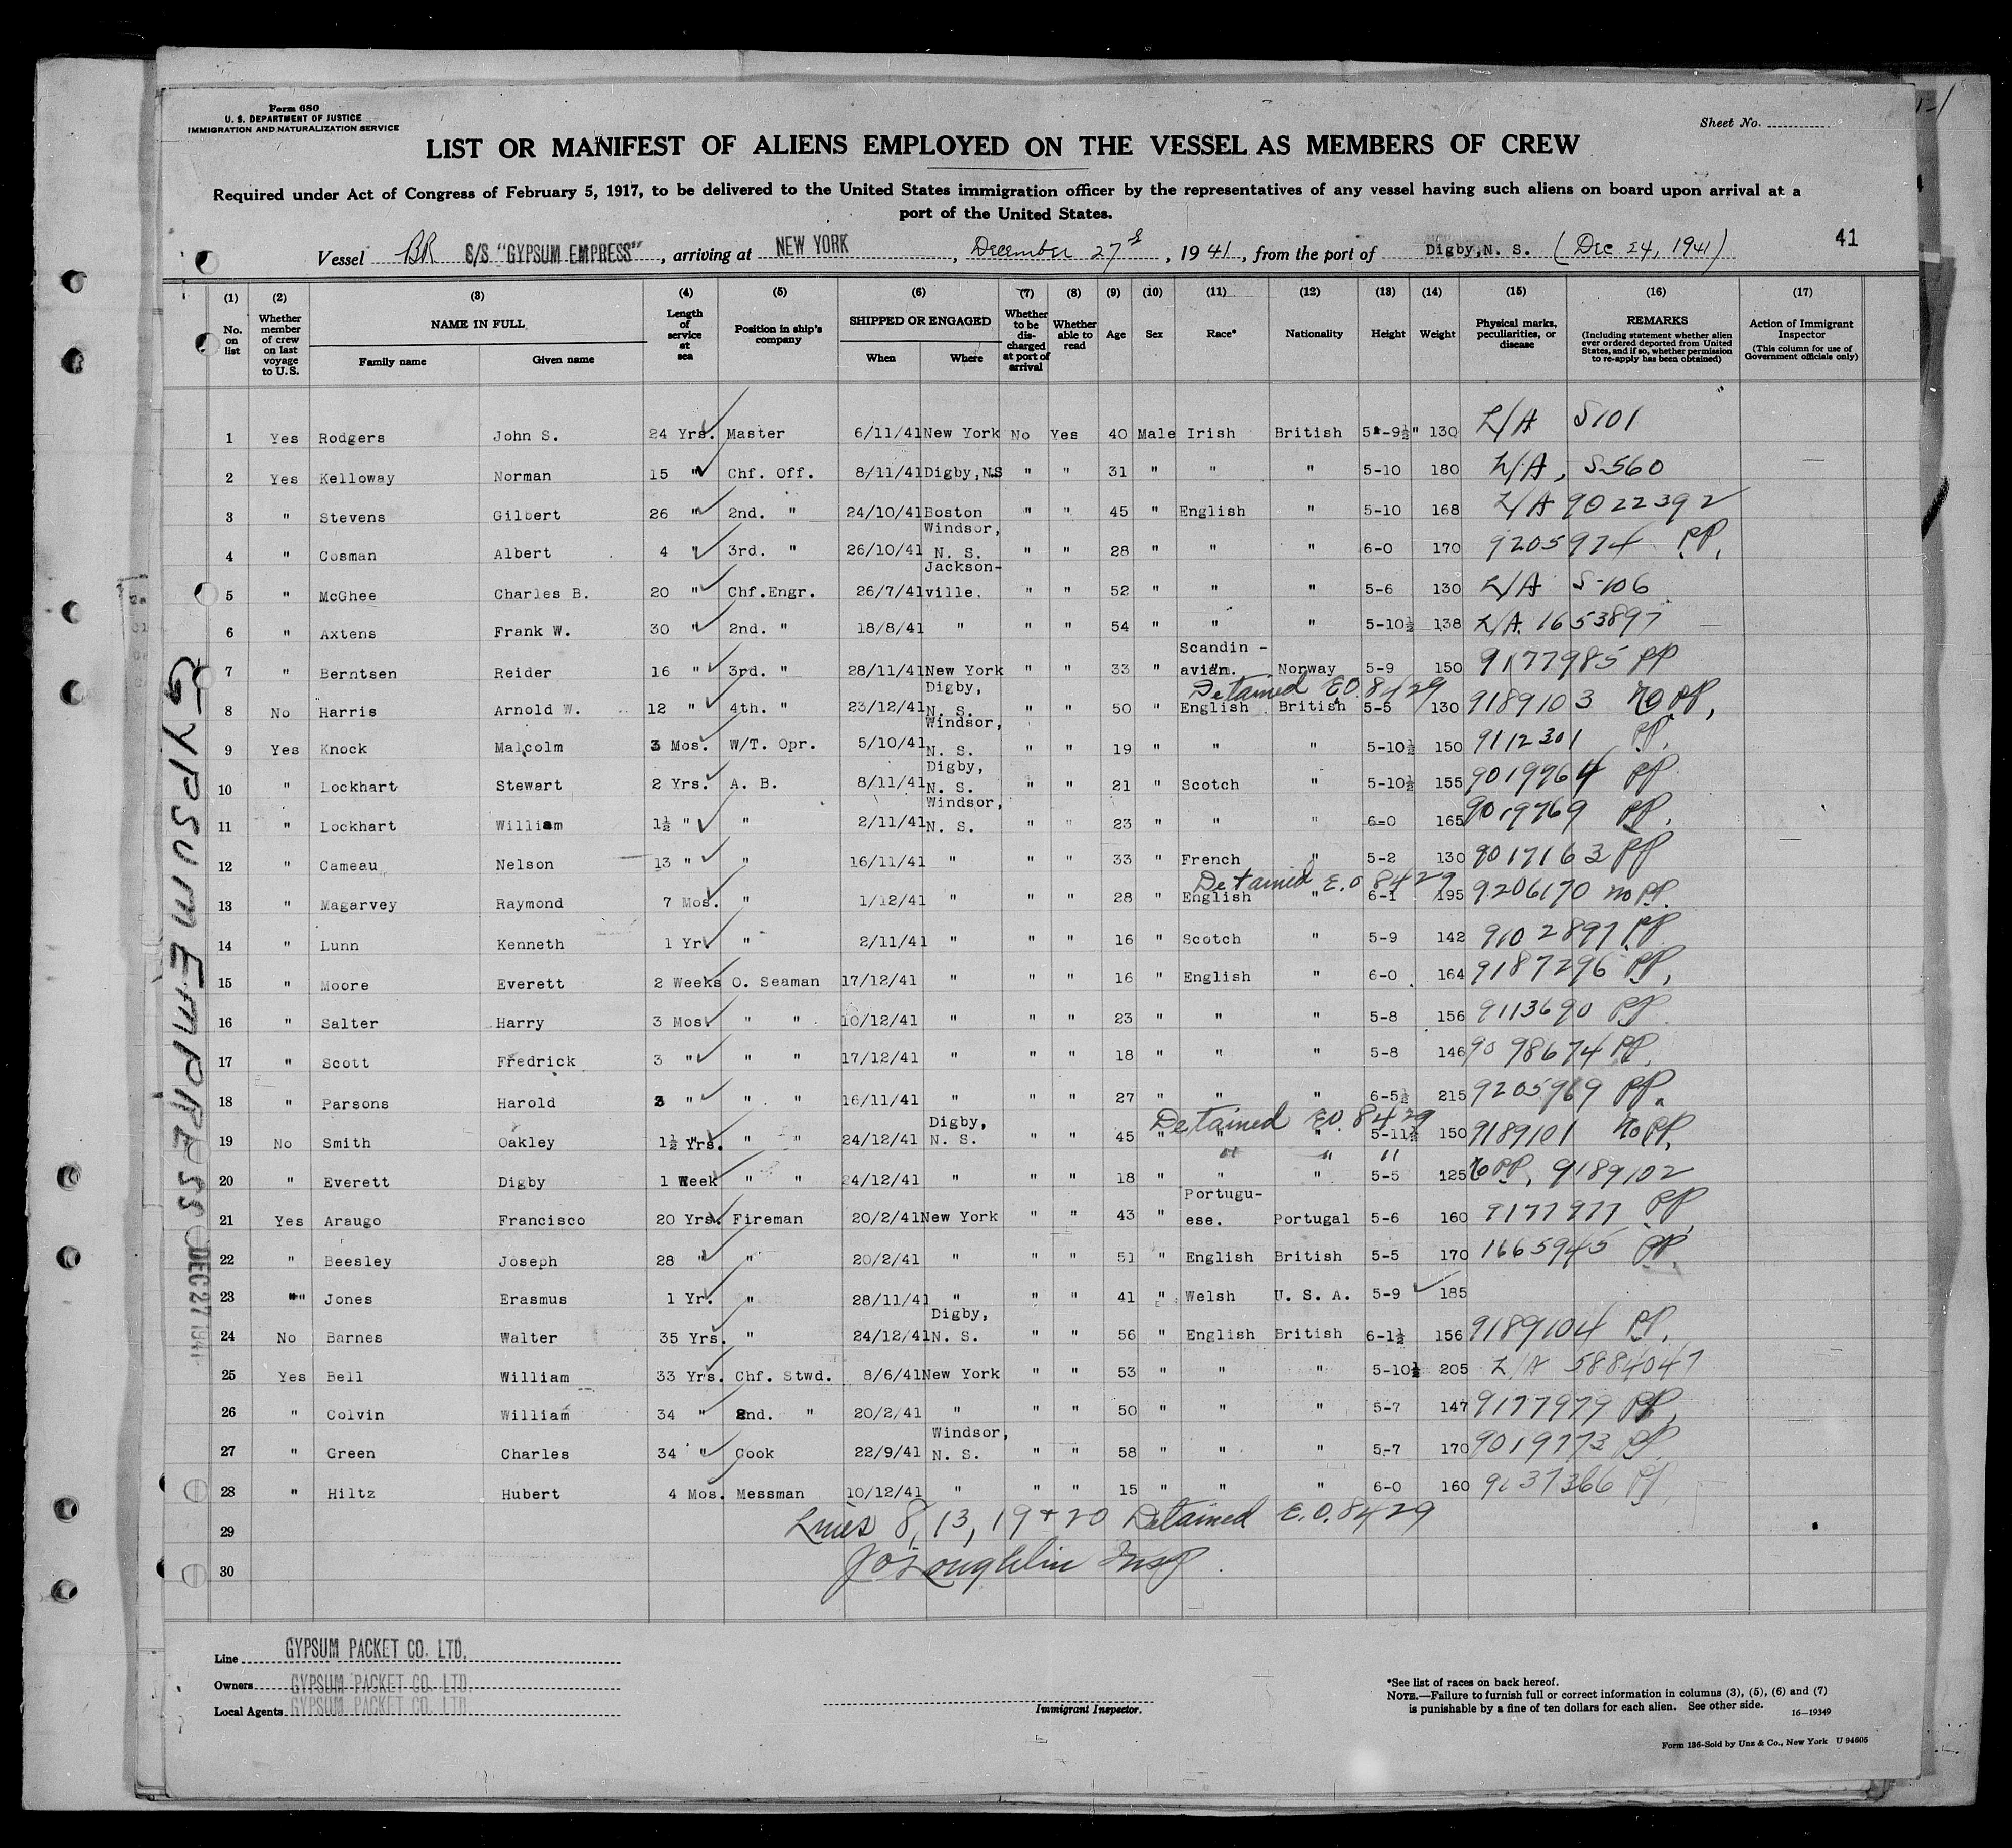 Form 680
U. S. DEPARTMENT OF JUSTICE
IMMIGRATION AND NATURALIZATION SERVICE
Sheet No.
LIST OR MANIFEST OF ALIENS EMPLOYED ON THE VESSEL AS MEMBERS OF CREW
Required under Act of Congress of February 5, 1917, to be delivered to the United States immigration officer by the representatives of any vessel having such aliens on board upon arrival at a
port of the United States.
Vessel BR S/S "GYPSUM EMPRESS", arriving at NEW YORK, December 27th, 1941, from the port of Digby, N. S. (Dec 24, 1941) 41
(1) (2) (3) (4) (5) (6) (7) (8) (9) (10) (11) (12) (13) (14) (15) (16) (17)
No. on list | Whether member of crew on last voyage to U.S. | NAME IN FULL Family name Given name | Length of service at sea | Position in ship's company | SHIPPED OR ENGAGED When Where | Whether to be discharged at port of arrival | Whether able to read | Age | Sex | Race* | Nationality | Height | Weight | Physical marks, peculiarities, or disease | REMARKS (Including statement whether alien ever ordered deported from United States, and if so, whether permission to re-apply has been obtained) | Action of Immigrant Inspector (This column for use of Government officials only)
1 Yes Rodgers John S. 24 Yrs. Master 6/11/41 New York No Yes 40 Male Irish British 5-9½" 130 L/A S101
2 Yes Kelloway Norman 15 " Chf. Off. 8/11/41 Digby, NS " " 31 " " " 5-10 180 L/A, S-560
3 " Stevens Gilbert 26 " 2nd. " 24/10/41 Boston " " 45 " English " 5-10 168 L/A 9022392
4 " Cosman Albert 4 " 3rd. " 26/10/41 Windsor, N. S. " " 28 " " " 6-0 170 9205974 PP.
5 " McGhee Charles B. 20 " Chf.Engr. 26/7/41 Jacksonville. " " 52 " " " 5-6 130 L/A S-106
6 " Axtens Frank W. 30 " 2nd. " 18/8/41 " " " 54 " " " 5-10½ 138 L/A. 1653897
7 " Berntsen Reider 16 " 3rd. " 28/11/41 New York " " 33 " Scandin - avian. Norway 5-9 150 9177985 PP
Detained E.O. 8429
8 No Harris Arnold W. 12 " 4th. " 23/12/41 Digby, N. S. " " 50 " English British 5-5 130 9189103 no PP,
9 Yes Knock Malcolm 3 Mos. W/T. Opr. 5/10/41 Windsor, N. S. " " 19 " " " 5-10½ 150 9112301 PP.
10 " Lockhart Stewart 2 Yrs. A. B. 8/11/41 Digby, N. S. " " 21 " Scotch " 5-10½ 155 9019964 PP
11 " Lockhart William 1½ " " 2/11/41 Windsor, N. S. " " 23 " " " 6-0 165 9019769 PP.
12 " Cameau Nelson 13 " " 16/11/41 " " " 33 " French " 5-2 130 9017163 PP
Detained E.O 8429
13 " Magarvey Raymond 7 Mos. " 1/12/41 " " " 28 " English " 6-1 195 9206170 no PP.
14 " Lunn Kenneth 1 Yr " 2/11/41 " " " 16 " Scotch " 5-9 142 9102897 PP
15 " Moore Everett 2 Weeks O. Seaman 17/12/41 " " " 16 " English " 6-0 164 9187296 PP,
16 " Salter Harry 3 Mos. " " 10/12/41 " " " 23 " " " 5-8 156 9113690 PP.
17 " Scott Fredrick 3 " " " 17/12/41 " " " 18 " " " 5-8 146 9098674 PP.
18 " Parsons Harold 3 " " " 16/11/41 " " " 27 " " " 6-5½ 215 9205969 PP.
Detained E.O. 8429
19 No Smith Oakley 1½ Yrs. " " 24/12/41 Digby, N. S. " " 45 " " " 5-11½ 150 9189101 no PP.
" " "
20 " Everett Digby 1 Week " " 24/12/41 " " " 18 " " " 5-5 125 no PP, 9189102
21 Yes Araugo Francisco 20 Yrs. Fireman 20/2/41 New York " " 43 " Portugu- ese. Portugal 5-6 160 9177977 PP,
22 " Beesley Joseph 28 " " 20/2/41 " " " 51 " English British 5-5 170 1665945 PP.
23 " Jones Erasmus 1 Yr. " 28/11/41 " " " 41 " Welsh U. S. A. 5-9 185
24 No Barnes Walter 35 Yrs. " 24/12/41 Digby, N. S. " " 56 " English British 6-1½ 156 9189104 PP.
25 Yes Bell William 33 Yrs. Chf. Stwd. 8/6/41 New York " " 53 " " " 5-10½ 205 L/A 5884047
26 " Colvin William 34 " 2nd. " 20/2/41 " " " 50 " " " 5-7 147 9177979 PP,
27 " Green Charles 34 " Cook 22/9/41 Windsor, N. S. " " 58 " " " 5-7 170 9019773 PP
28 " Hiltz Hubert 4 Mos. Messman 10/12/41 " " " 15 " " " 6-0 160 9037366 PP,
29 Lines 8, 13, 19 + 20 Detained E.O. 8429
30 J O'Loughlin Insp.
GYPSUM EMPRESS DEC 27 1941
Line GYPSUM PACKET CO. LTD.
Owners GYPSUM PACKET CO. LTD.
Local Agents GYPSUM PACKET CO. LTD.
Immigrant Inspector.
*See list of races on back hereof.
NOTE.—Failure to furnish full or correct information in columns (3), (5), (6) and (7)
is punishable by a fine of ten dollars for each alien. See other side.
16—19349
Form 136-Sold by Unz & Co., New York U 94605